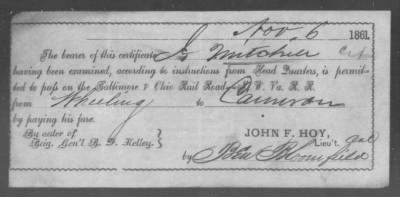 Nov. 6 1861.
The bearer of this certificate Mitchell
having been examined, according to instructions from Head Quarters, is permit-
ted to pass on the Baltimore & Ohio Rail Road, N. W. Va. R. R.
from Wheeling to Cameron
by paying his fare.
By order of
Brig. Gen'l B. F. Kelley.
JOHN F. HOY,
Lieu't
by Ben Bloomfield